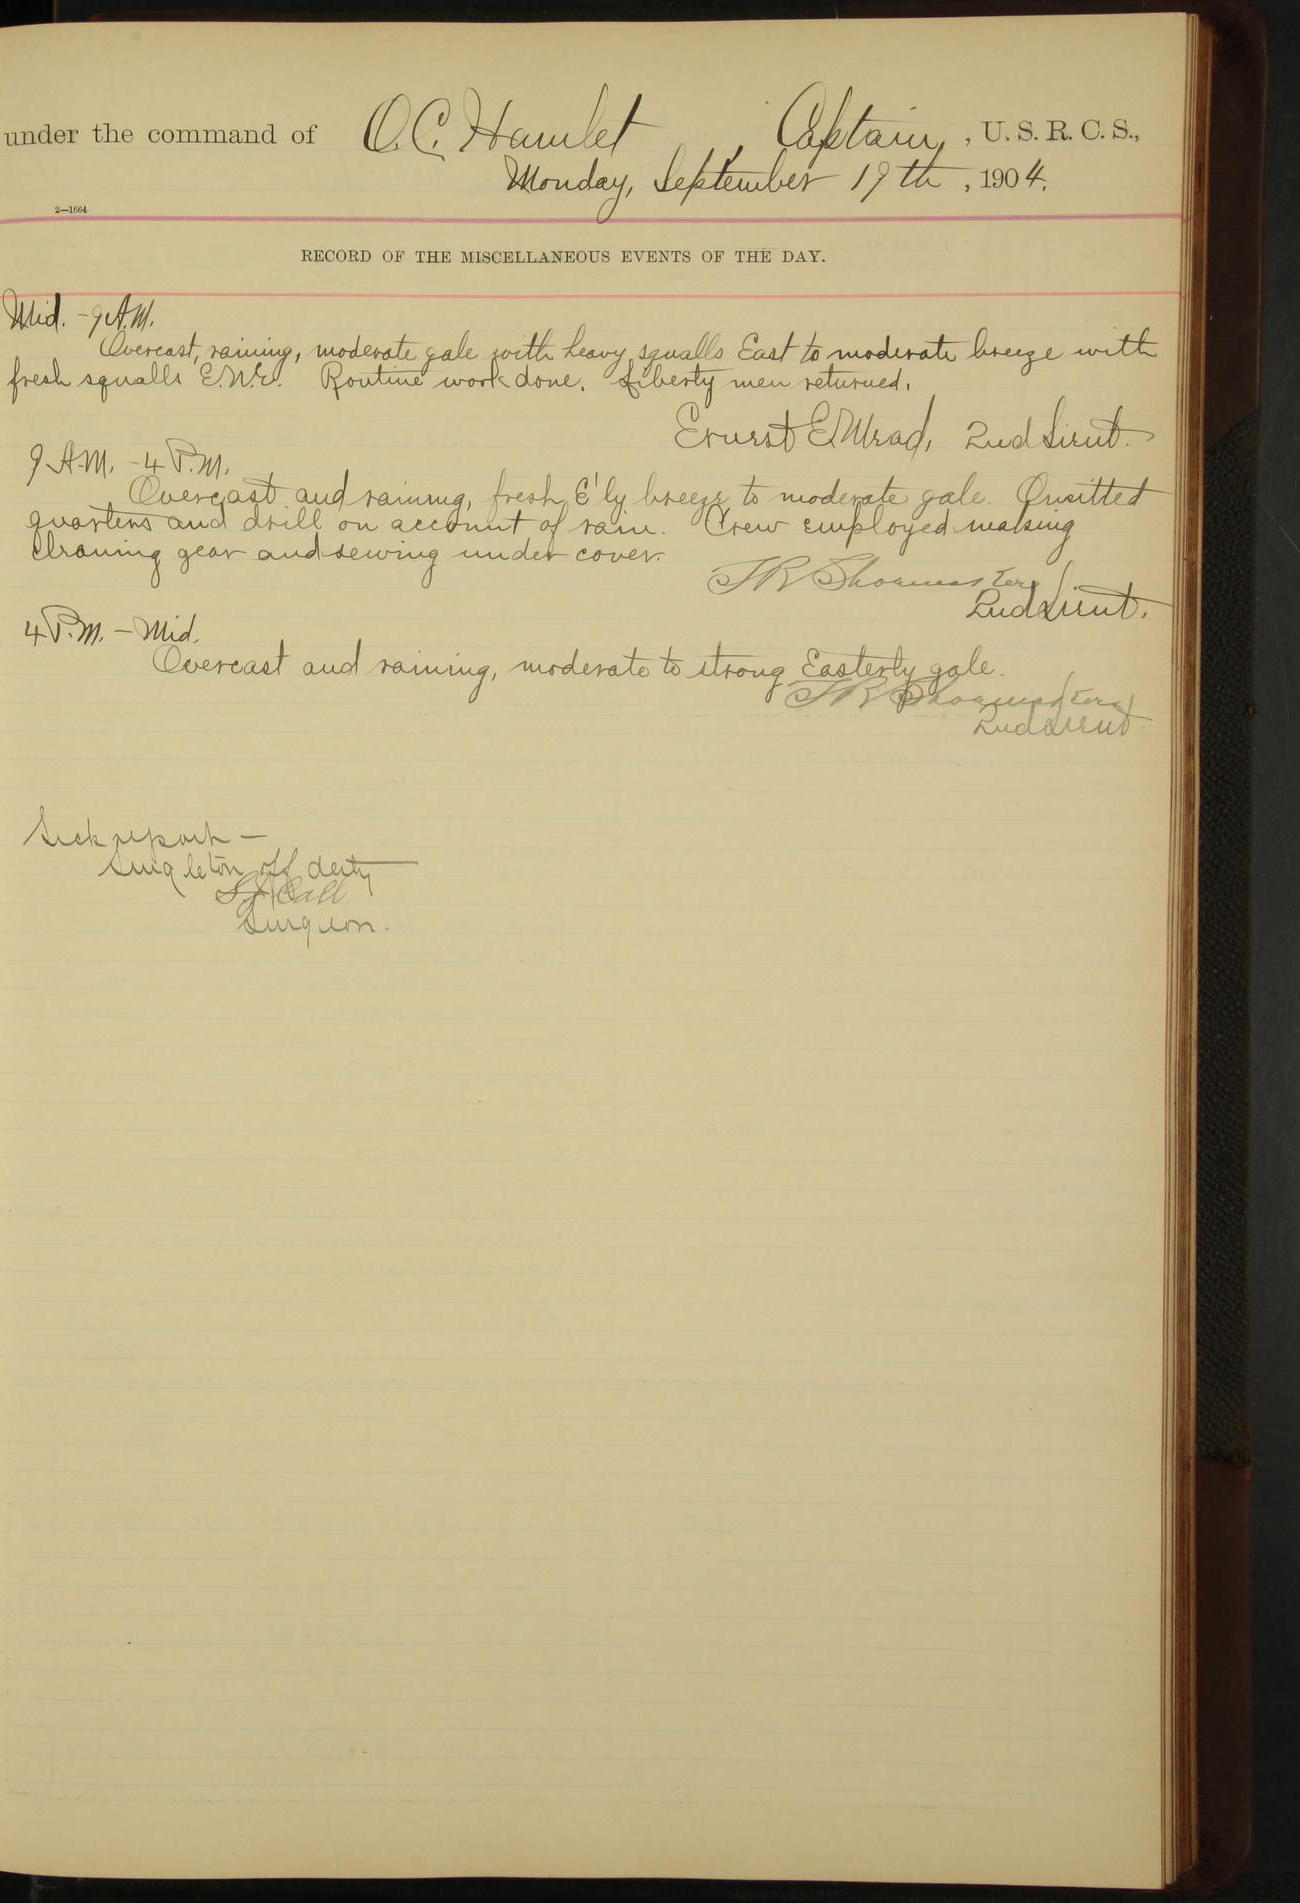 under the command of O. C. Hamlet, Captain, U. S. R. C. S.,
Monday, September 19th, 1904.
2—1664
RECORD OF THE MISCELLANEOUS EVENTS OF THE DAY.
Mid. - 9 A.M.
Overcast, raining, moderate gale with heavy squalls East to moderate breeze with
fresh squalls Routine work done. Liberty men returned.
Ernest E. Mead, 2nd Lieut.
9 A.M. - 4 P.M.
Overcast and raining, fresh E'ly breeze to moderate gale. Omitted
quarters and drill on account of rain. Crew employed making
cleaning gear and sewing under cover.
2nd Lieut.
4 P.M. - Mid.
Overcast and raining, moderate to strong Easterly gale.
2nd Lieut.
Sick report —
Singleton off duty
S J Call
Surgeon.